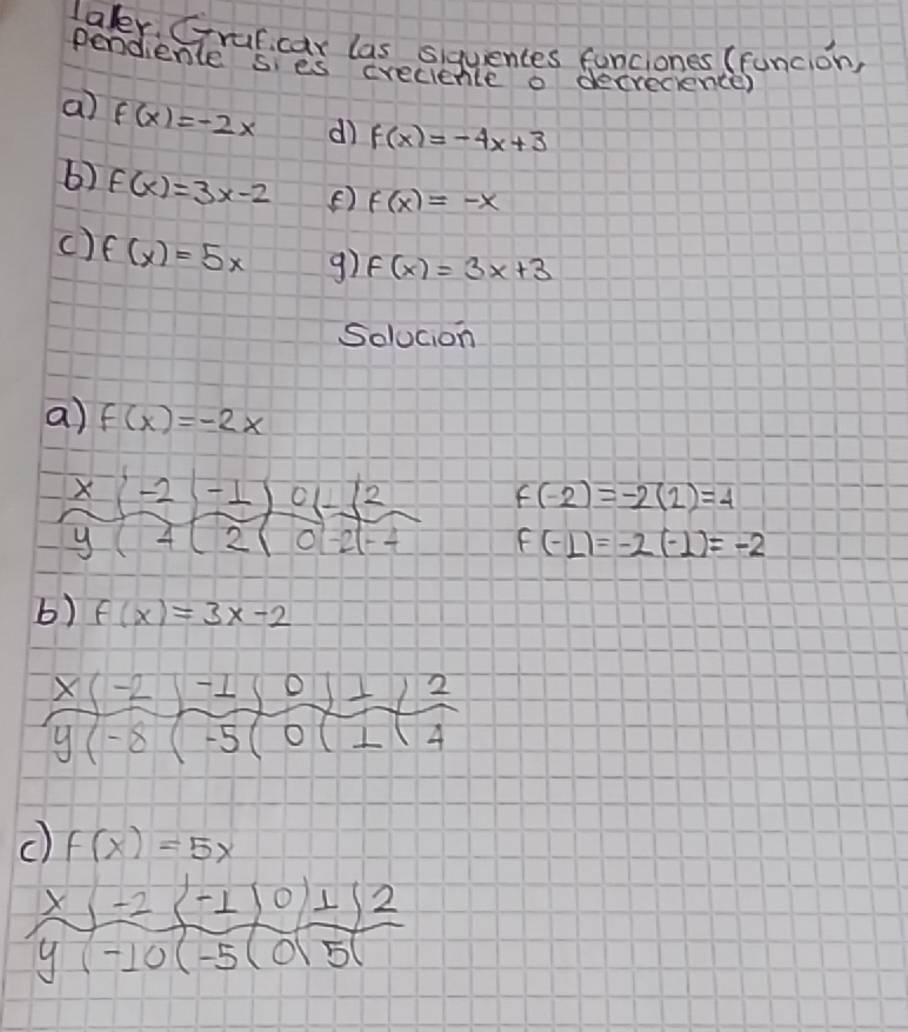 Taller. Graficar las siguientes funciones (función,
pendiente si es creciente o decreciente)
a) f(x)=-2x d) f(x)=-4x+3
b) f(x)=3x-2 f) f(x)=-x
c) f(x)=5x g) f(x)=3x+3
Solución
a) f(x)=-2x
x -2 -1 0 - 2 f(-2)=-2(2)=4
y 4 2 0 -2 -4 f(-1)=-2(-1)=-2
b) f(x)=3x-2
x -2 -1 0 1 2
y -8 -5 0 1 4
c) f(x)=5x
x -2 -1 0 1 2
y -10 -5 0 5